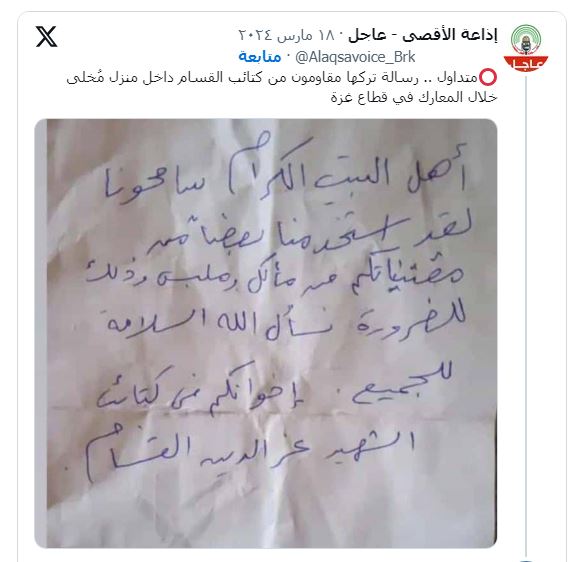 إذاعة الأقصى - عاجل · ١٨ مارس ٢٠٢٤
@Alaqsavoice_Brk · متابعة
عاجل
⭕متداول .. رسالة تركها مقاومون من كتائب القسام داخل منزل مُخلى
خلال المعارك في قطاع غزة
أهل البيت الكرام سامحونا
لقد استخدمنا بعضاً من
مقتنياتكم من مأكل وملبس وذلك
للضرورة نسأل الله السلامة
للجميع. إخوانكم في كتائب
الشهيد عز الدين القسام.